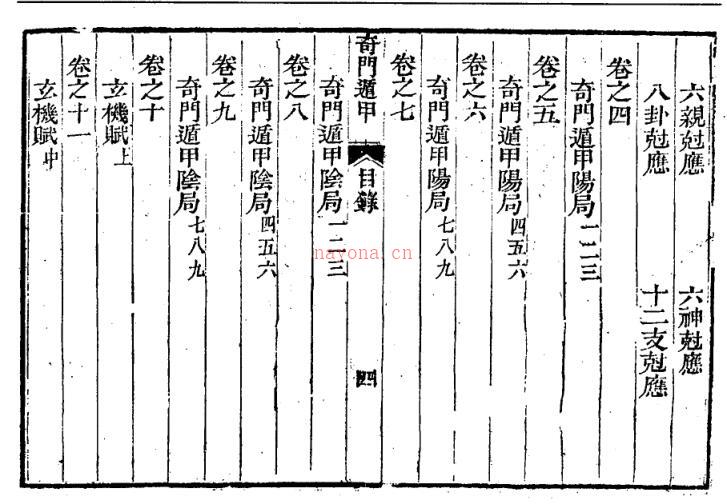 六親尅應　六神尅應
八卦尅應　十二支尅應
卷之四
奇門遁甲陽局一二三
卷之五
奇門遁甲陽局四五六
卷之六
奇門遁甲陽局七八九
卷之七
奇門遁甲　目錄　四
奇門遁甲陰局一二三
卷之八
奇門遁甲陰局四五六
卷之九
奇門遁甲陰局七八九
卷之十
玄機賦上
卷之十一
玄機賦中
nayona.cn